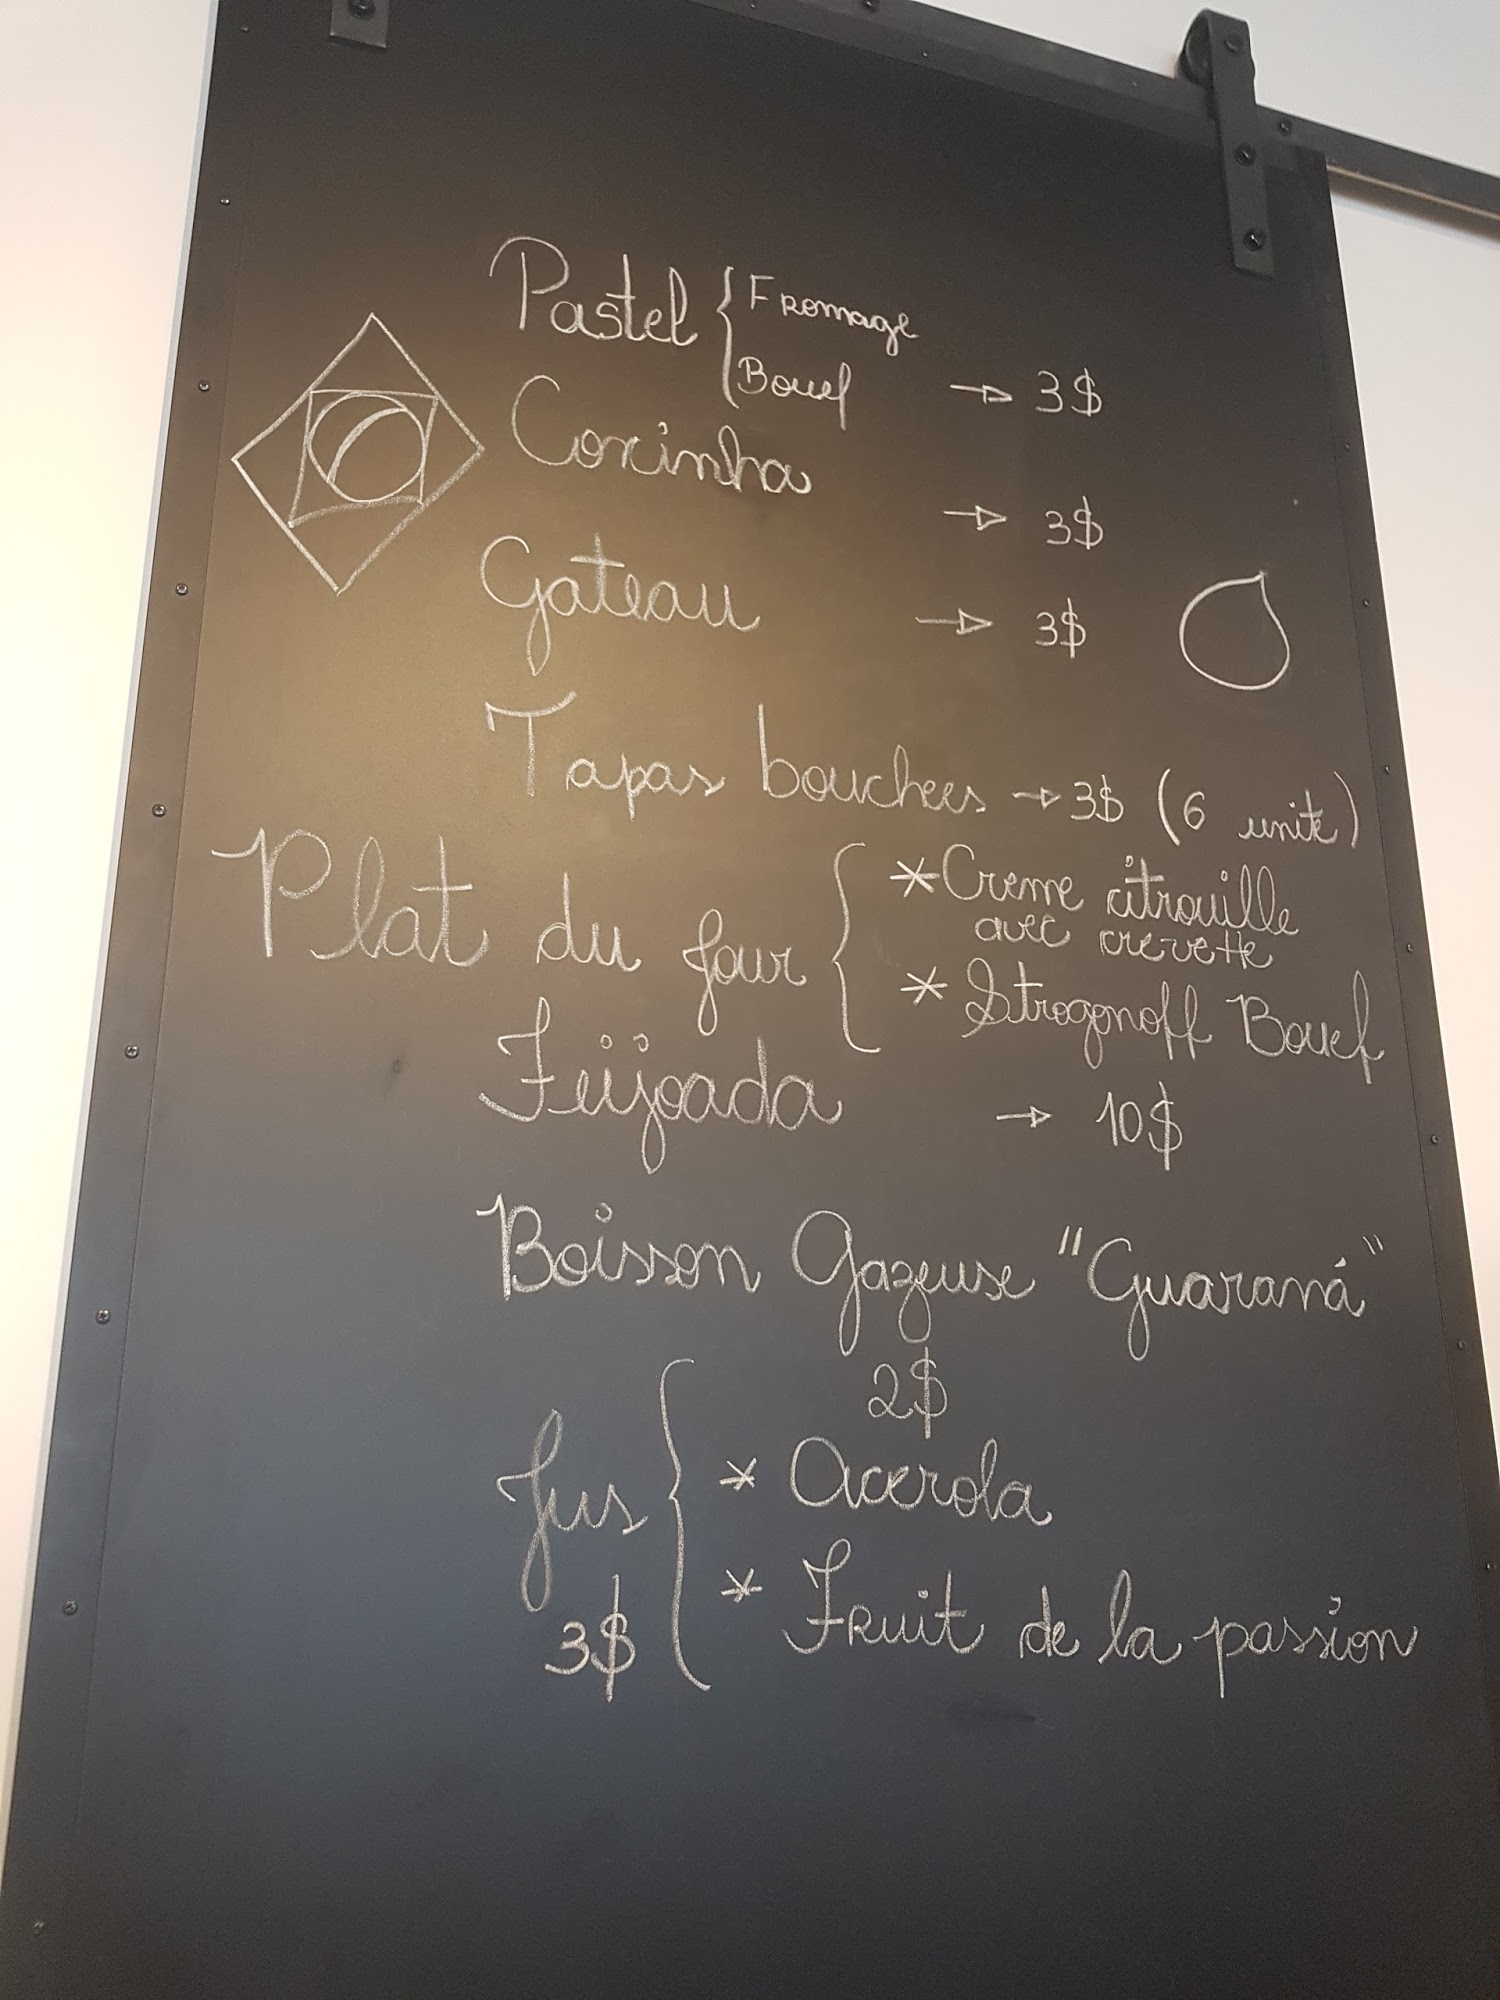 Pastel { Fromage
Bouef → 3$
Coxinha → 3$
Gateau → 3$
Tapas bouchees → 3$ (6 unité)
Plat du jour { * Creme citrouille
avec crevette
* Strogonoff Bouef
Feijoada → 10$
Boisson Gazeuse "Guaraná"
2$
Jus { * Acerola
3$ * Fruit de la passion